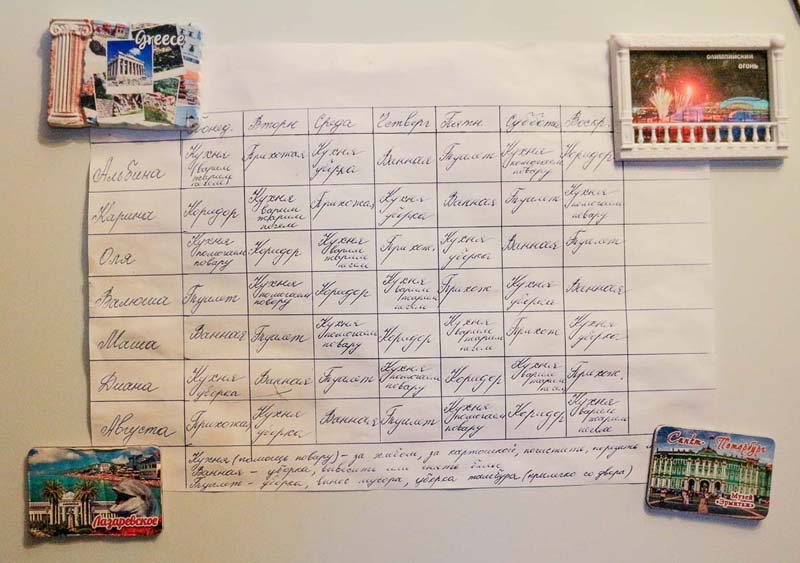 Greece
ОЛИМПИЙСКИЙ
ОГОНЬ
Понед. Вторн Среда Четверг Пятн. Суббота Воскр.
Альбина Кухня варим жарим печем Прихожая Кухня уборка Ванная Туалет Кухня помогаем повару Коридор
Карина Коридор Кухня варим жарим печем Прихожая Кухня уборка Ванная Туалет Кухня помогаем повару
Оля Кухня помогаем повару Коридор Кухня варим жарим печем Прихож. Кухня уборка Ванная Туалет
Валюша Туалет Кухня помогаем повару Коридор Кухня варим жарим печем Прихож. Кухня уборка Ванная
Маша Ванная Туалет Кухня помогаем повару Коридор Кухня варим жарим печем Прихож Кухня уборка
Диана Кухня уборка Ванная Туалет Кухня помогаем повару Коридор Кухня варим жарим печем Прихож.
Августа Прихожая Кухня уборка Ванная Туалет Кухня помогаем повару Коридор Кухня варим жарим печем
Кухня (помощь повару) - за хлебом, за картошкой, почистить, порезать
Ванная - уборка, вывесить или снять бельё
Туалет - уборка, вынос мусора, уборка тамбура (прямиком со двора)
Лазаревское
Санкт-Петербург
Музей
«Эрмитаж»